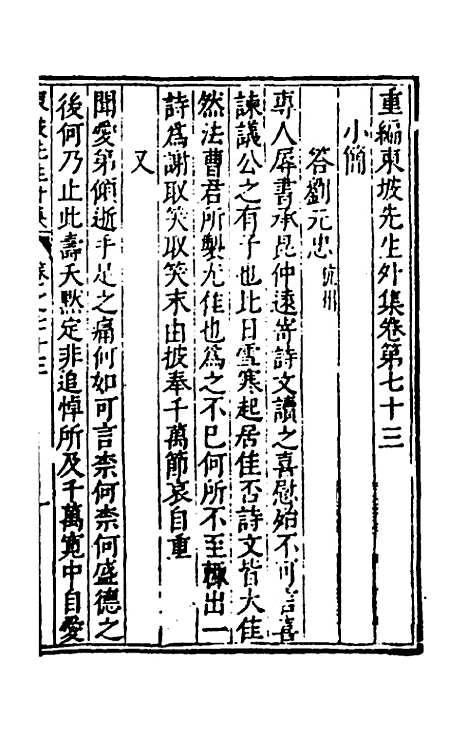 重編東坡先生外集卷第七十三
小簡
答劉元忠 杭州
專人辱書承昆仲遠寄詩文讀之喜慰殆不可言喜
諫議公之有子也比日雪寒起居佳否詩文皆大佳
然法曹君所製尤佳也為之不已何所不至輙出一
詩為謝取笑取笑末由披奉千萬節哀自重
又
聞愛弟傾逝手足之痛何如可言柰何柰何盛德之
後何乃止此壽夭默定非追悼所及千萬寛中自愛
東坡先生外集 卷之七十三 一